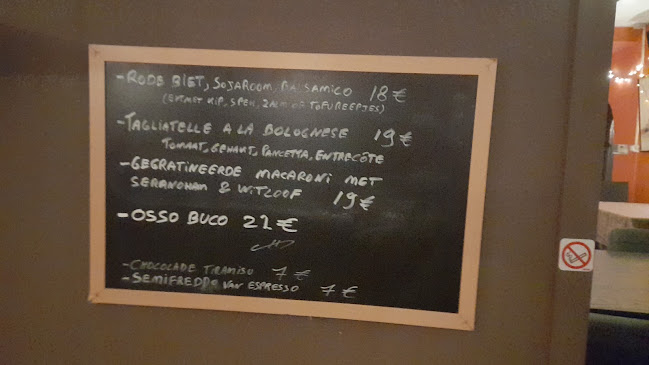 - RODE BIET, SOJAROOM, BALSAMICO 18 €
KIP, SPEK, ZALM OF TOFUREEPJES)
- TAGLIATELLE A LA BOLOGNESE 19 €
TOMAAT, GEHAKT, PANCETTA, ENTRECÔTE
- GEGRATINEERDE MACARONI MET
SERANOHAM & WITLOOF 19 €
- OSSO BUCO 22 €
- CHOCOLADE TIRAMISU 7 €
- SEMIFREDDO VAN ESPRESSO 7 €